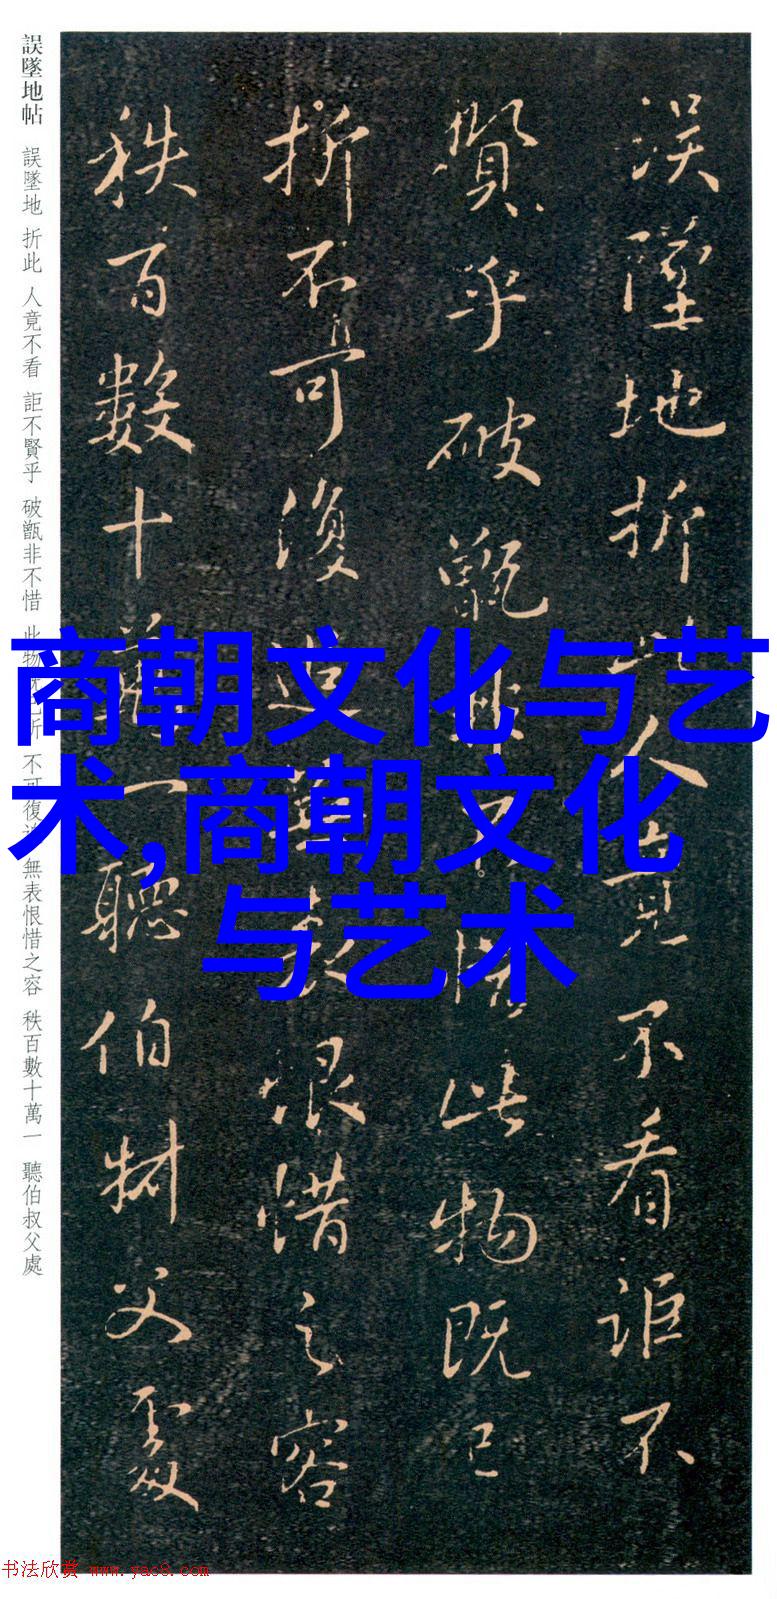 誤墜地帖 誤墜地 折此 人竟不看 詎不賢乎 破甑非不惜 此物 不可復 無表恨惜之容 秩百數十萬一 聽伯叔父處
誤墜地折此人竟不看詎不
賢乎破甑非不惜此物既已
折不可復追無表恨惜之容
秩百數十萬一聽伯叔父處
商朝文化与艺
术,商朝文化
与艺术
书法欣赏 www.yac8.com